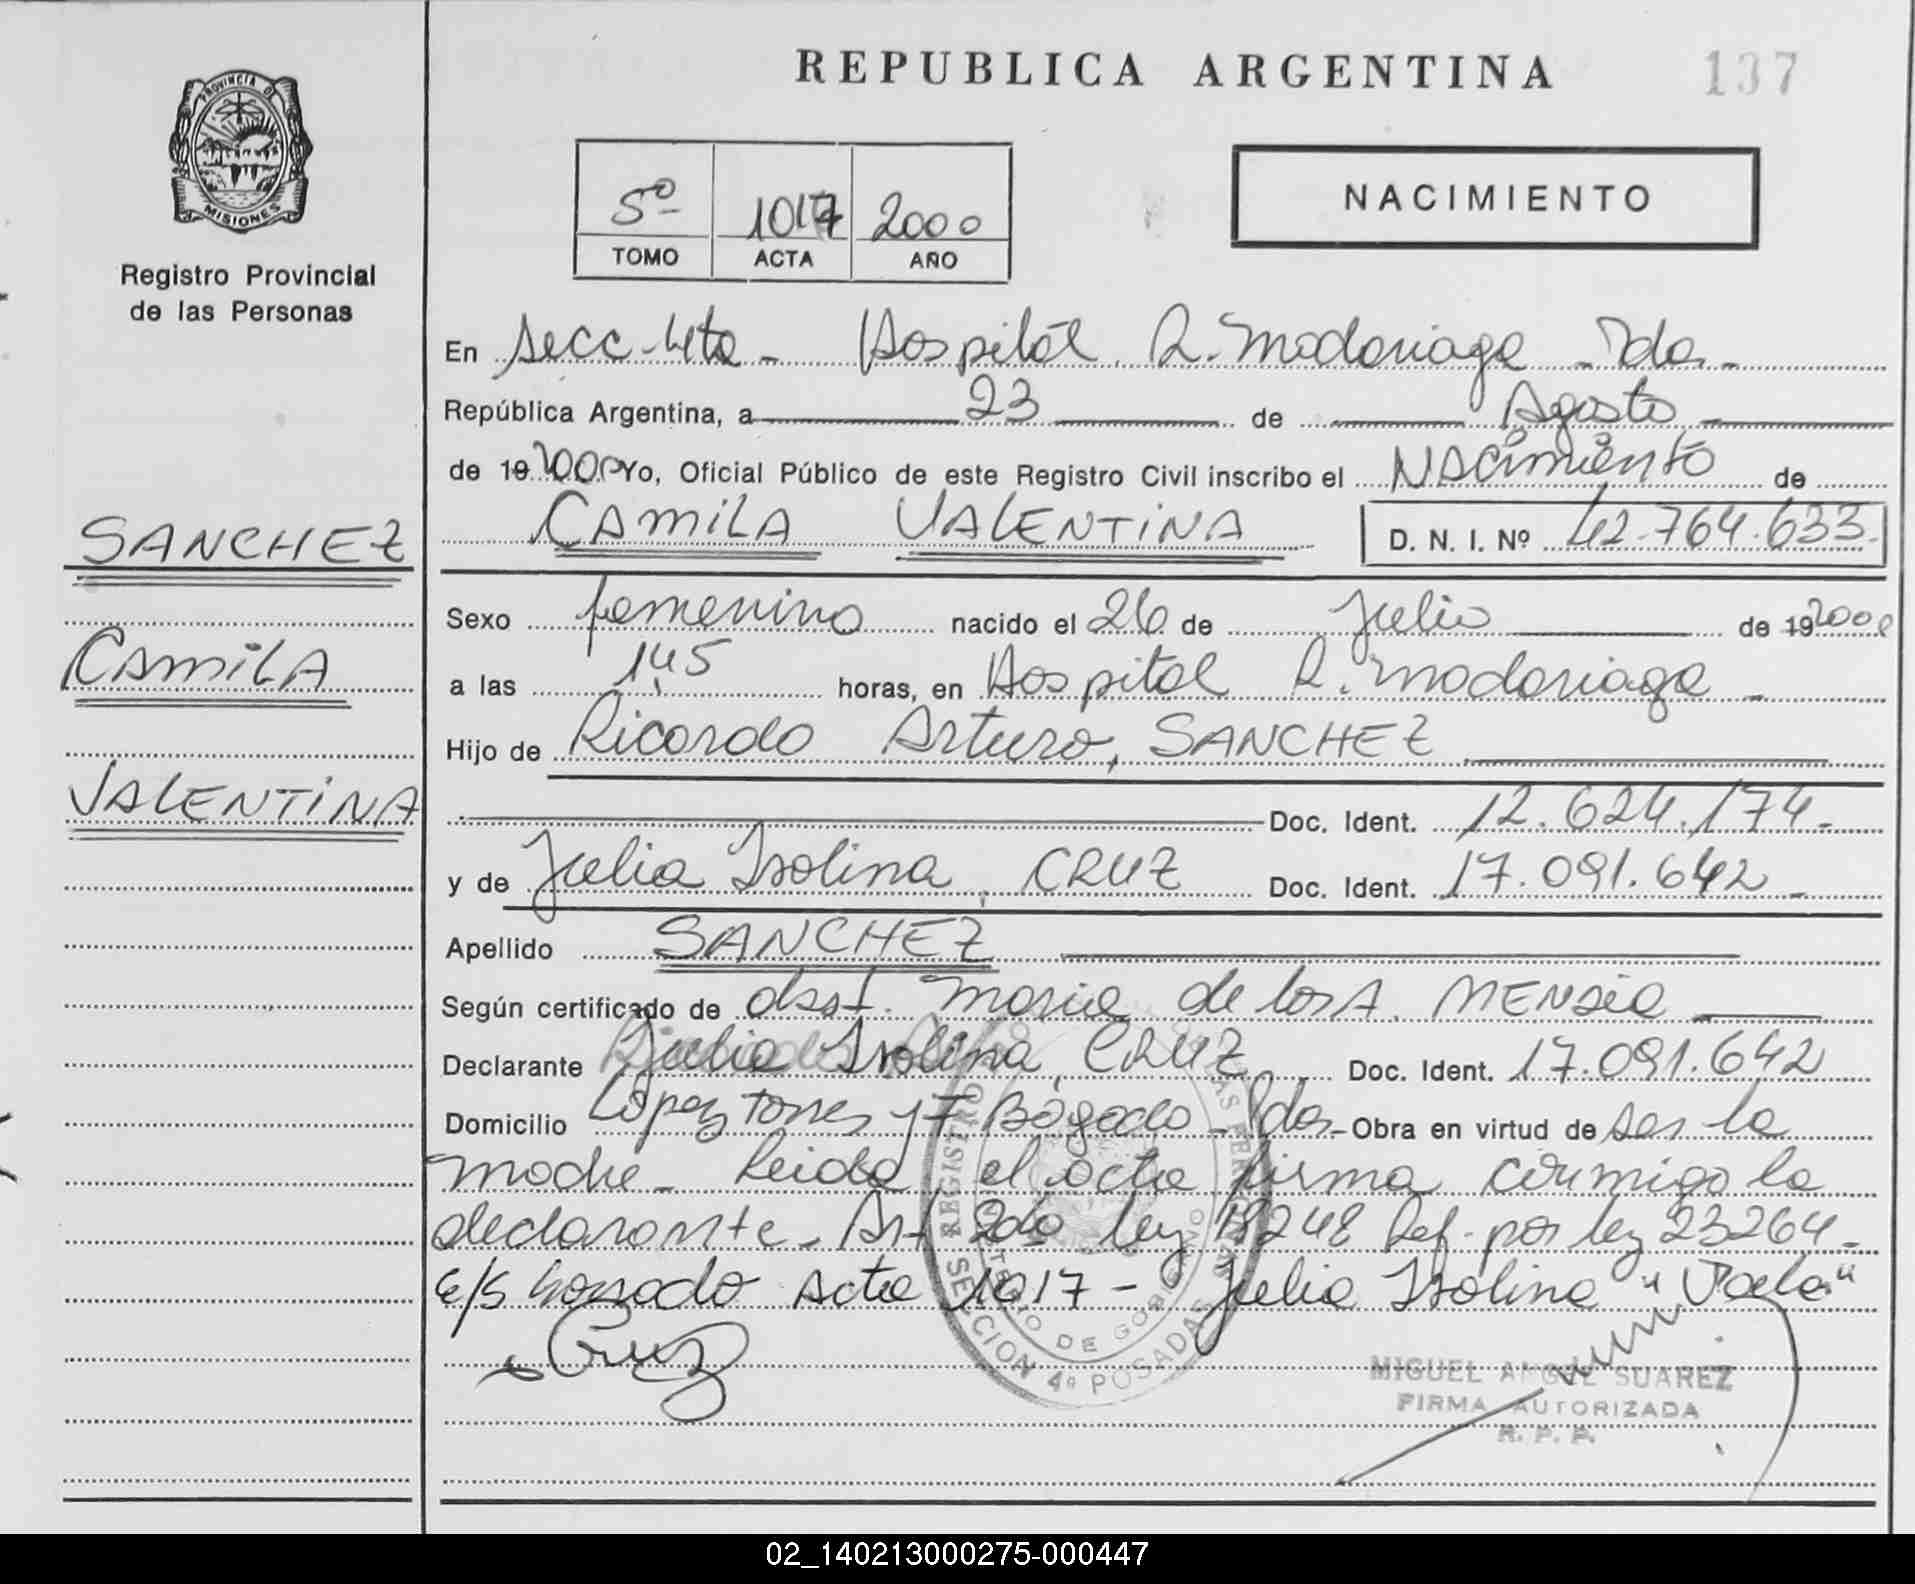 REPUBLICA ARGENTINA
137
PROVINCIA DE
MISIONES
Registro Provincial
de las Personas
5º 1017 2000
TOMO ACTA AÑO
NACIMIENTO
SANCHEZ
CAMILA
VALENTINA
En Secc. 4ta - Hospital R. Madariaga - Pdas -
República Argentina, a 23 de Agosto
de 19 2000 Yo, Oficial Público de este Registro Civil inscribo el Nacimiento de
CAMILA VALENTINA D. N. I. Nº 42.764.633.
Sexo femenino nacido el 26 de Julio de 19 2000
a las 1,45 horas, en Hospital R. Madariaga -
Hijo de Ricardo Arturo, SANCHEZ
Doc. Ident. 12.624.174.-
y de Julia Isolina, CRUZ Doc. Ident. 17.091.642 -
Apellido SANCHEZ
Según certificado de obst. Maria de los A. MENSIA
Declarante Julia Isolina, CRUZ Doc. Ident. 17.091.642
Domicilio Lopez Torres y F Bogado - Pdas - Obra en virtud de ser la
madre - Leida el acta firma conmigo la
declarante - Art 2do ley 18248 Ref. por ley 23264 -
E/S borrado Acta 1017 - Julia Isolina "Vale"
Cruz
SECCION 4ª POSADAS
DE GOBIERNO
REGISTRO
MIGUEL ANGEL SUAREZ
FIRMA AUTORIZADA
R. P. P.
02_140213000275-000447